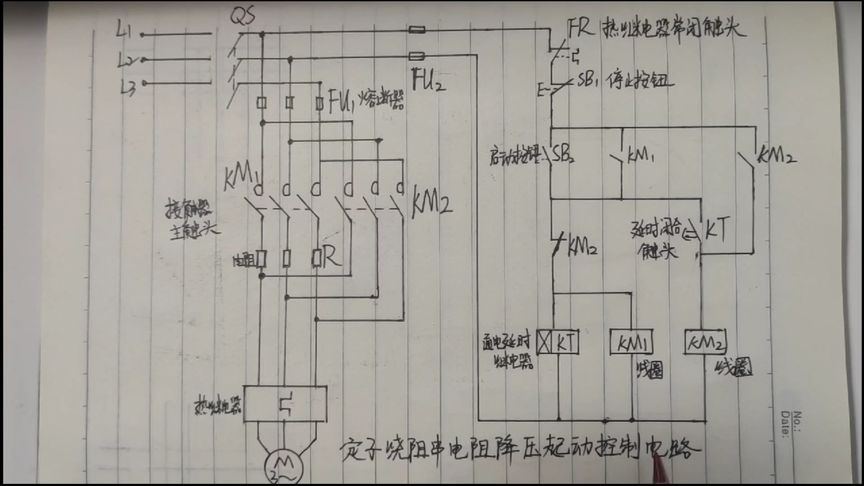 QS
L1
L2
L3
FU1 熔断器
FU2
FR 热继电器常闭触头
SB1 停止按钮
E
启动按钮
SB2
KM1
KM2
KM1
KM2
接触器
主触头
电阻
R
KM2
延时闭合
触头
KT
通电延时
继电器
KT
KM1
线圈
KM2
线圈
热继电器
M
3~
定子绕阻串电阻降压起动控制电路
No.:
Date: